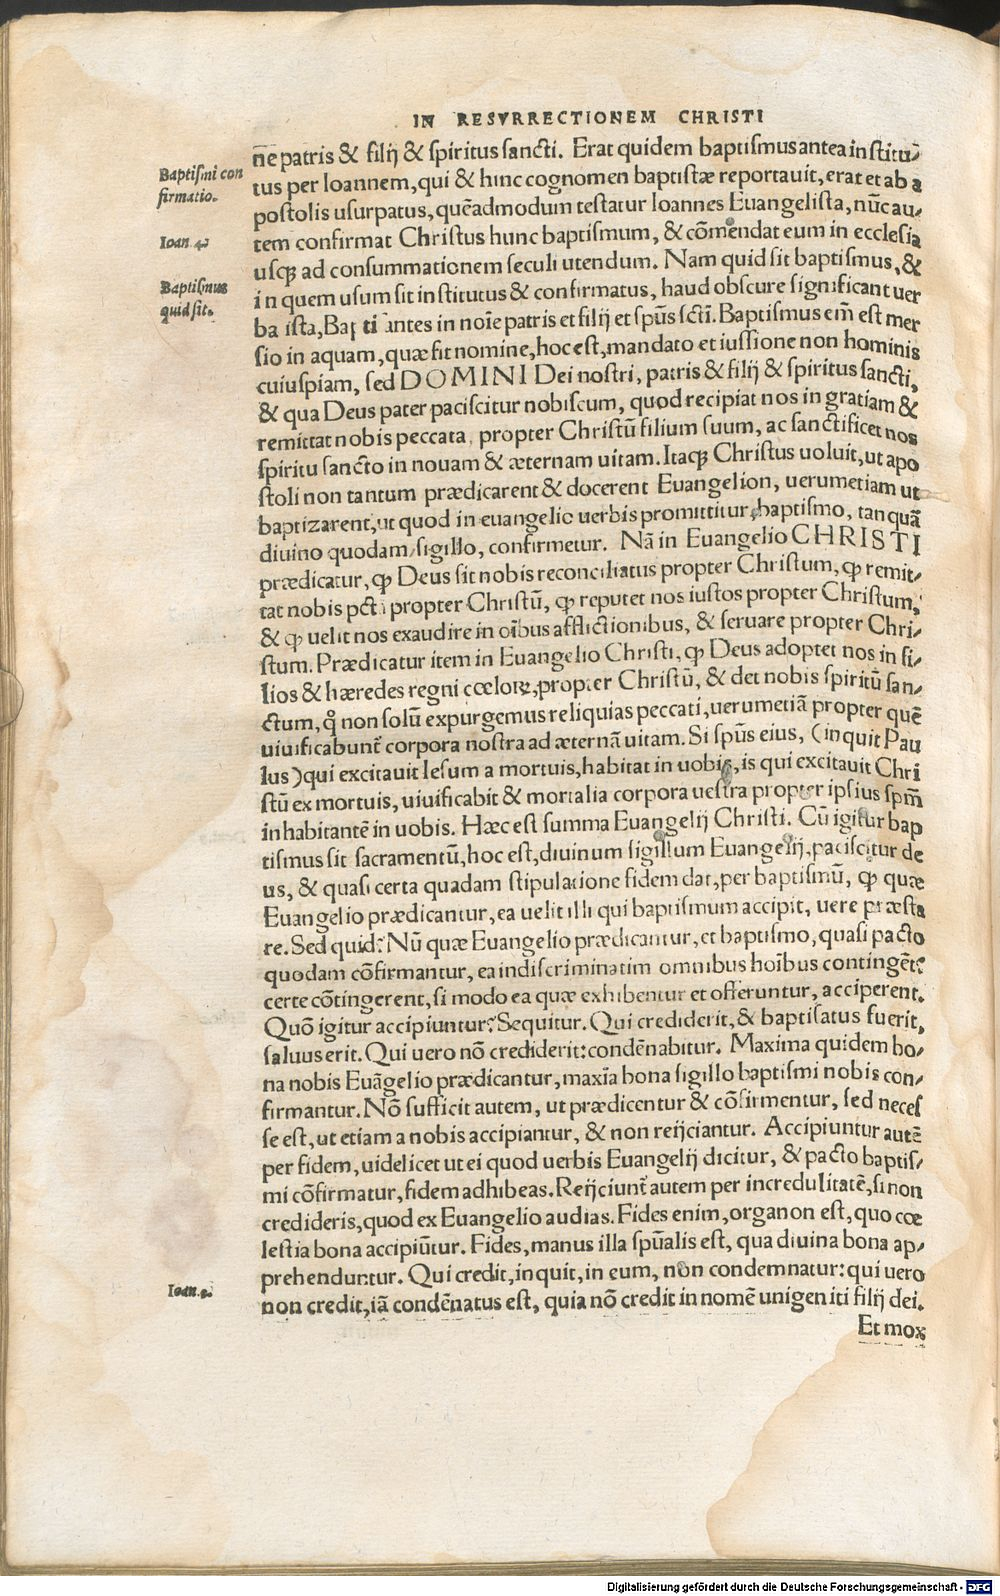 IN RESVRRECTIONEM CHRISTI
n̄e patris & filij & spiritus sancti. Erat quidem baptismus antea institu-
Baptismi con
firmatio.
tus per Ioannem, qui & hinc cognomen baptistæ reportauit, erat et ab a
postolis usurpatus, quẽadmodum testatur Ioannes Euangelista, nũc au-
Ioan. 4.
tem confirmat Christus hunc baptismum, & cõmendat eum in ecclesia
usqꝫ ad consummationem seculi utendum. Nam quid sit baptismus, &
Baptismus
quid sit.
in quem usum sit institutus & confirmatus, haud obscure significant uer
ba ista, Bap ti antes in noĩe patris et filij et spũs scti. Baptismus em̃ est mer
sio in aquam, quæ fit nomine, hoc est, mandato et iussione non hominis
cuiuspiam, sed DOMINI Dei nostri, patris & filij & spiritus sancti,
& qua Deus pater paciscitur nobiscum, quod recipiat nos in gratiam &
remittat nobis peccata, propter Christũ filium suum, ac sanctificet nos
spiritu sancto in nouam & æternam uitam. Itaqꝫ Christus uoluit, ut apo
stoli non tantum prædicarent & docerent Euangelion, uerumetiam ut
baptizarent, ut quod in euangelio uerbis promittitur, baptismo, tanquã
diuino quodam sigillo, confirmetur. Nã in Euangelio CHRISTI
prædicatur, ꝙ Deus sit nobis reconciliatus propter Christum, ꝙ remit-
tat nobis pctã propter Christũ, ꝙ reputet nos iustos propter Christum,
& ꝙ uelit nos exaudire in oĩbus afflictionibus, & seruare propter Chri-
stum. Prædicatur item in Euangelio Christi, ꝙ Deus adoptet nos in fi-
lios & hæredes regni cœloꝝ, propter Christũ, & det nobis spiritũ san-
ctum, q̊ non solũ expurgemus reliquias peccati, uerumetiã propter quẽ
uiuificabunt̃ corpora nostra ad æternã uitam. Si spũs eius, (inquit Pau
lus) qui excitauit Iesum a mortuis, habitat in uobis, is qui excitauit Chri
stũ ex mortuis, uiuificabit & mortalia corpora uestra propter ipsius spm̃
inhabitantẽ in uobis. Hæc est summa Euangelij Christi. Cũ igitur bap
tismus sit sacramentũ, hoc est, diuinum sigillum Euangelij, paciscitur de
us, & quasi certa quadam stipulatione fidem dat, per baptismũ, ꝙ quæ
Euangelio prædicantur, ea uelit illi qui baptismum accipit, uere præsta
re. Sed quid? Nũ quæ Euangelio prædicantur, et baptismo, quasi pacto
quodam cõfirmantur, ea indiscriminatim omnibus hoĩbus contingẽt?
certe cõtingerent, si modo ea quæ exhibentur et offeruntur, acciperent.
Quõ igitur accipiuntur? Sequitur. Qui crediderit, & baptisatus fuerit,
saluus erit. Qui uero nõ crediderit: condẽnabitur. Maxima quidem bo-
na nobis Euãgelio prædicantur, maxĩa bona sigillo baptismi nobis con-
firmantur. Nõ sufficit autem, ut prædicentur & cõfirmentur, sed neces
se est, ut etiam a nobis accipiantur, & non reijciantur. Accipiuntur autẽ
per fidem, uidelicet ut ei quod uerbis Euangelij dicitur, & pacto baptis-
mi cõfirmatur, fidem adhibeas. Reijciunt̃ autem per incredulitatẽ, si non
credideris, quod ex Euangelio audias. Fides enim, organon est, quo cœ
lestia bona accipiũtur. Fides, manus illa spũalis est, qua diuina bona ap-
prehenduntur. Qui credit, inquit, in eum, non condemnatur: qui uero
Ioan.
non credit, iã condẽnatus est, quia nõ credit in nomẽ unigeniti filij dei.
Et mox
Digitalisierung gefördert durch die Deutsche Forschungsgemeinschaft - DFG